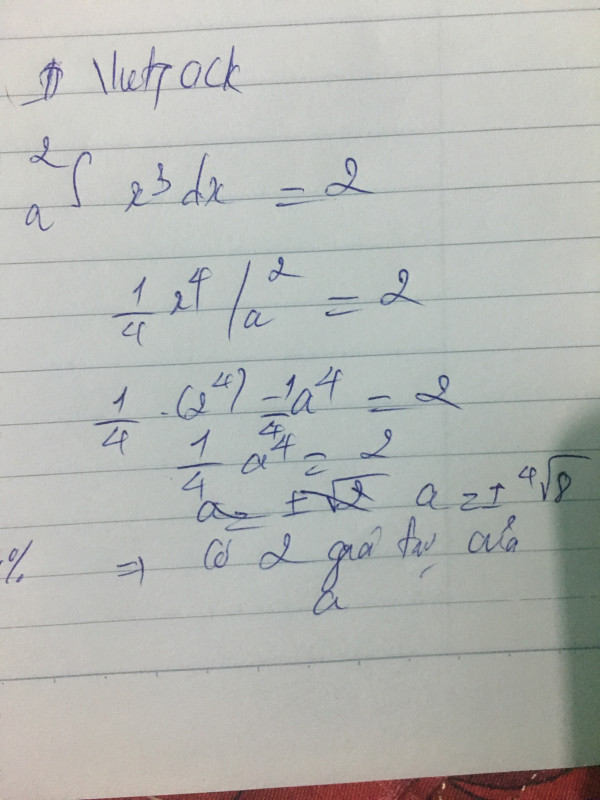 Vietjack
₂∫ᵃ x³dx = 2
1/4 x⁴ |ₐ² = 2
1/4 . (2⁴) - 1/4 a⁴ = 2
1/4 a⁴ = 2
a = ±√2 a = ± ⁴√8
% ⇒ Có 2 giá trị của
a